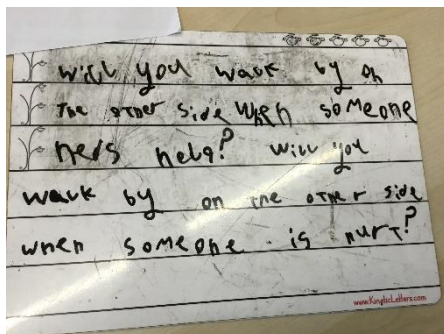 will you walk by on
The other side when someone
neds help? will you
walk by on the other side
when someone is hurt?
www.KineticLetters.com